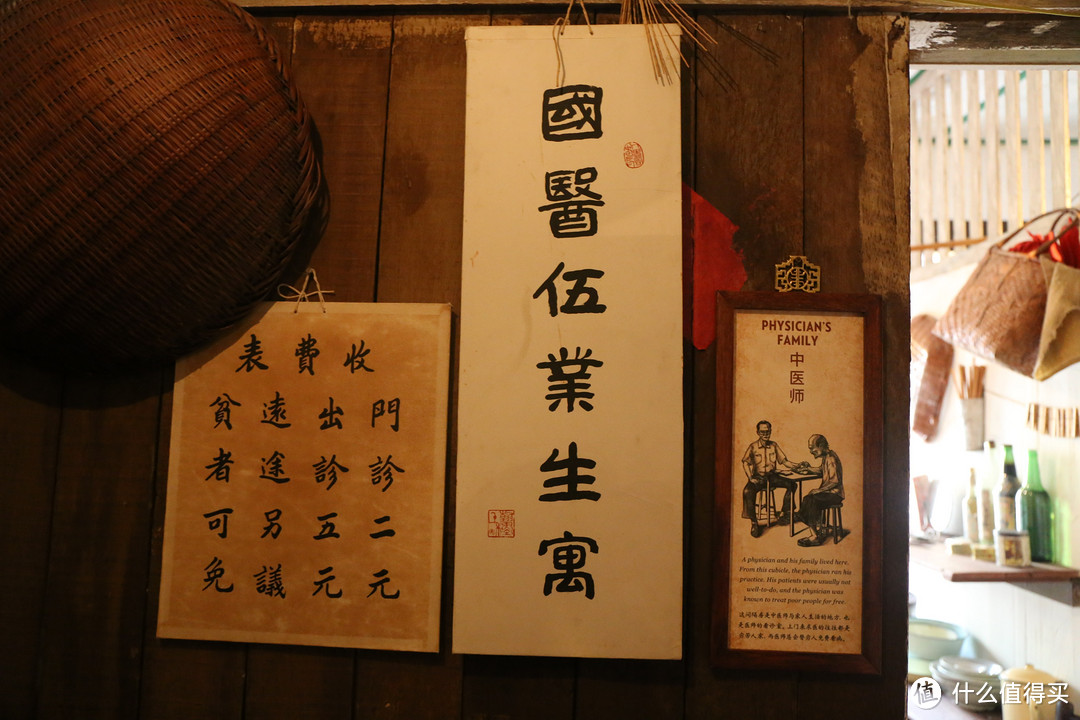 收費表
門診二元
出診五元
遠途另議
貧者可免
國醫伍業生寓
PHYSICIAN'S
FAMILY
中医师
A physician and his family lived here.
From this cubicle, the physician ran his
practice. His patients were usually not
well-to-do, and the physician was
known to treat poor people for free.
这间隔房是中医师与家人生活的地方,也
是医师的看诊室。上门来求医的往往都是
贫苦人家,而医师总会替穷人免费看病。
值 什么值得买